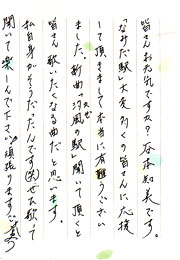 皆さんお元気ですか？ 水本知美です。
「なみだ駅」大変多くの皆さんに応援
して頂きまして本当に有難うござい
ました。新曲「汐風の駅」聞いて頂くと
皆さん歌いたくなる曲だと思います。
私自身がそうだったんです(笑)ぜひ歌って
聞いて楽しんで下さい。頑張ります